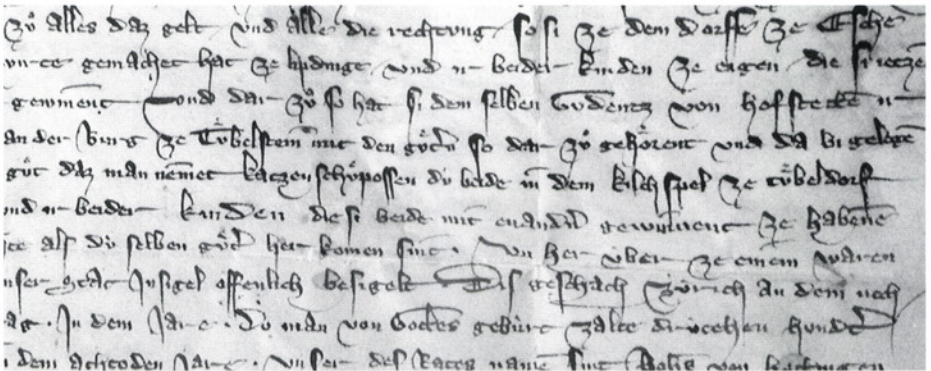 zů alles daz gelt und alle die rechtung so si ze dem dorffe ze Tsche
gemachet hat ze lipdinge und ir beider kinden ze eigen die si ietze
gewinnent und dar zů so hat si dem selben von hofstetten ir
an der burg ze Tůbelstein mit den gůtern so dar zů gehörent und da bi gelegen
gůt daz man nemmet katzen schůpossen dů beide in dem kilchspel ze tůbeldorf
und ir beider kinden die si beide mit enander gewinnent ze habenne
als dů selben gůter her komen sint. Und her über ze einem waren
unser Stat Insigel offenlich besigelt Dis geschach Zürich an dem nech
ag. In dem Jare. do man von Gottes gebürt zalte drücehen hundert
dem achtoden Jare. Unser des Rates namen sint von